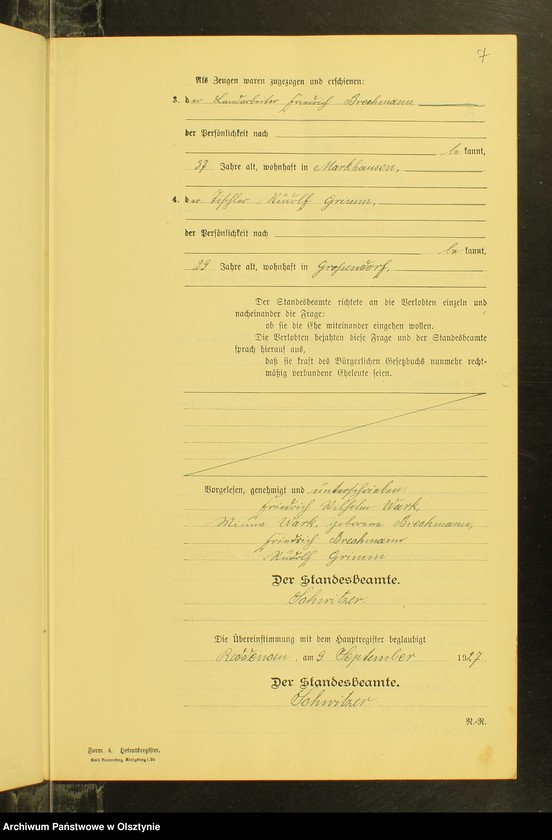 7
Als Zeugen waren zugezogen und erschienen:
3. der Landarbeiter Friedrich Brechmann
der Persönlichkeit nach
be kannt,
37 Jahre alt, wohnhaft in Markhausen,
4. der Tischler Rudolf Grimm,
der Persönlichkeit nach
be kannt,
29 Jahre alt, wohnhaft in Großendorf,
Der Standesbeamte richtete an die Verlobten einzeln und
nacheinander die Frage:
ob sie die Ehe miteinander eingehen wollen.
Die Verlobten bejahten diese Frage und der Standesbeamte
sprach hierauf aus,
daß sie kraft des Bürgerlichen Gesetzbuchs nunmehr recht-
mäßig verbundene Eheleute seien.
Vorgelesen, genehmigt und unterschrieben:
Friedrich Wilhelm Wark.
Minna Wark, geborene Brechmann,
Friedrich Brechmann
Rudolf Grimm
Der Standesbeamte.
Schwitzer.
Die Übereinstimmung mit dem Hauptregister beglaubigt
Reddenau, am 9. September 1927
Der Standesbeamte.
Schwitzer
N.-R.
Form. 4. Heiratsregister.
Königsberg i. Pr.
Archiwum Państwowe w Olsztynie